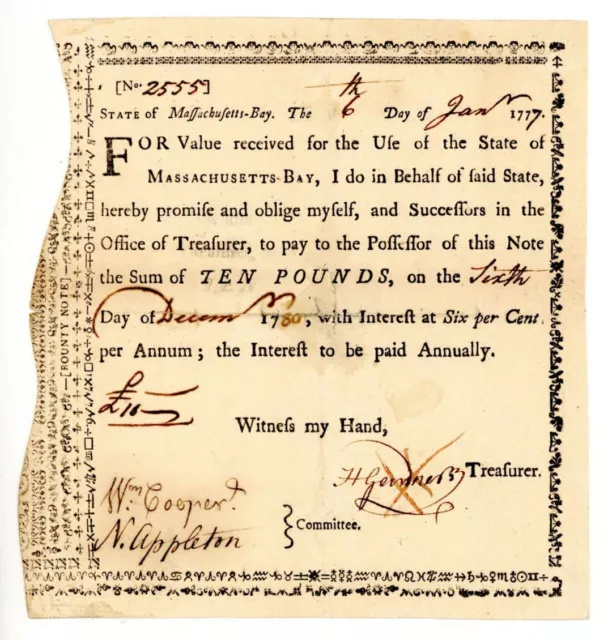 [No. 2555]
STATE of Maſſachuſetts-Bay. The 6th Day of Janr 1777.
FOR Value received for the Uſe of the State of
MASSACHUSETTS-BAY, I do in Behalf of ſaid State,
hereby promiſe and oblige myſelf, and Succeſſors in the
Office of Treaſurer, to pay to the Poſſeſſor of this Note
the Sum of TEN POUNDS, on the Sixth
Day of Decemr 1780, with Intereſt at Six per Cent.
per Annum; the Intereſt to be paid Annually.
£10
Witneſs my Hand,
Treaſurer.
Wm. Cooper
N. Appleton
Committee.
[BOUNTY NOTE]